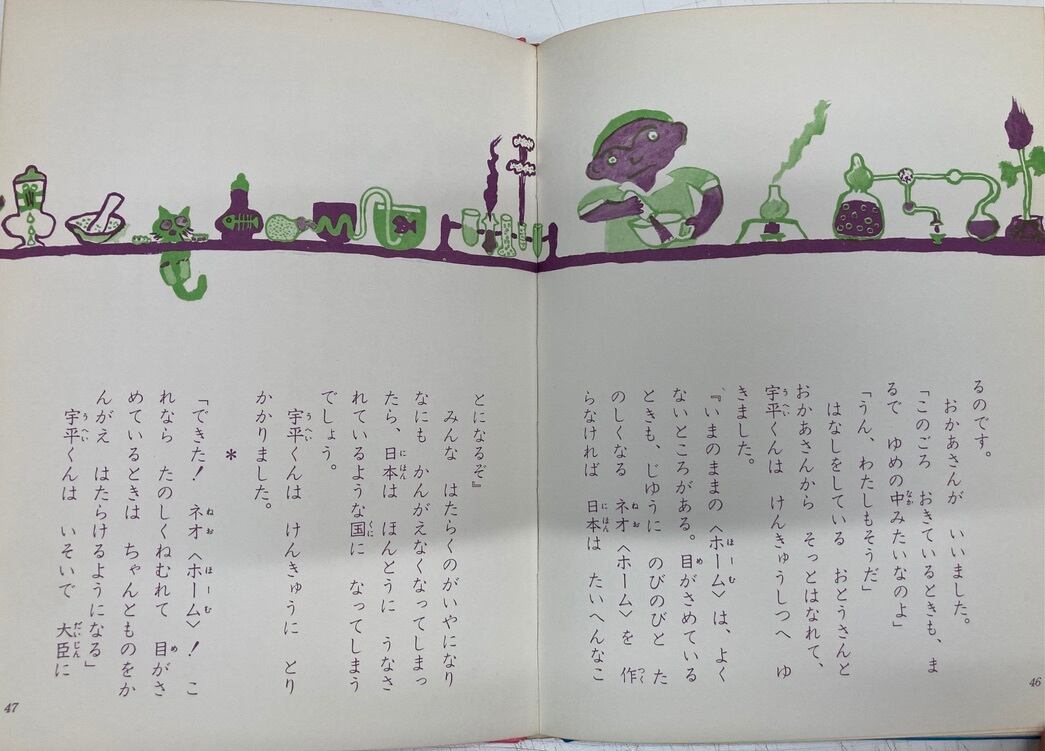 るのです。
　おかあさんが　いいました。
「このごろ　おきているときも、ま
るで　ゆめの中みたいなのよ」
「うん、わたしもそうだ」
　はなしをしている　おとうさんと
おかあさんから　そっとはなれて、
宇平くんは　けんきゅうしつへ　ゆ
きました。
『いまのままの〈ホーム〉は、よく
ないところがある。目がさめている
ときも、じゆうに　のびのびと　た
のしくなる　ネオ〈ホーム〉を　作
らなければ　日本は　たいへんなこ
46
とになるぞ』
　みんな　はたらくのがいやになり
なにも　かんがえなくなってしまっ
たら、日本は　ほんとうに　うなさ
れているような国に　なってしまう
でしょう。
　宇平くんは　けんきゅうに　とり
かかりました。
＊
「できた！　ネオ〈ホーム〉！　こ
れなら　たのしくねむれて　目がさ
めているときは　ちゃんとものをか
んがえ　はたらけるようになる」
　宇平くんは　いそいで　大臣に
47